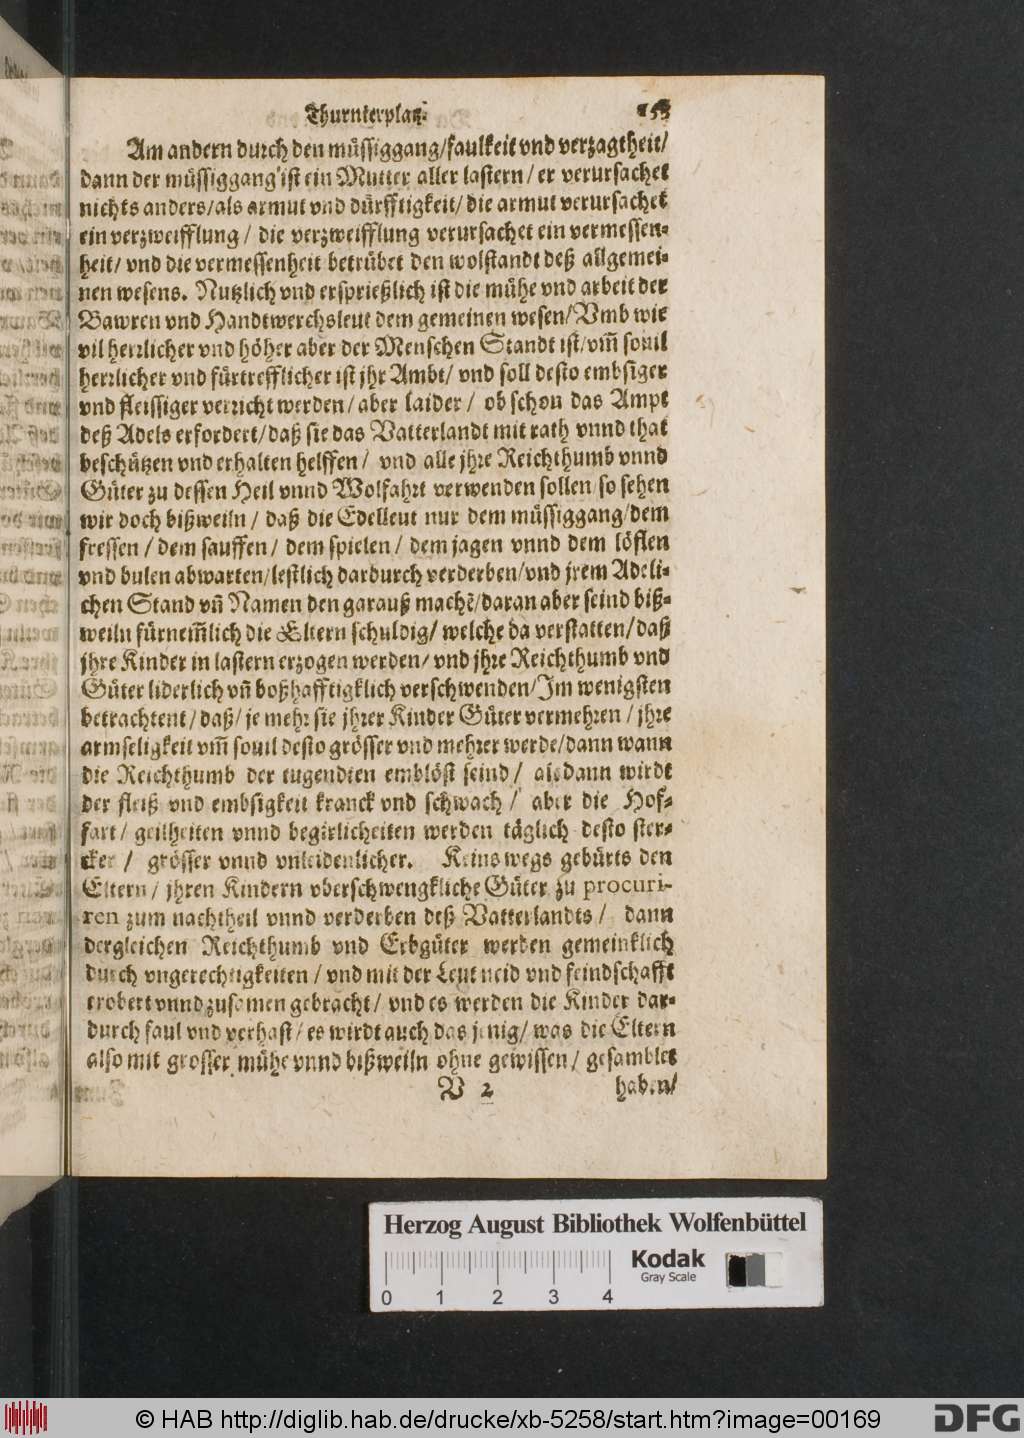 Thurnierplatz. 155
Am andern durch den müssiggang/faulkeit vnd verzagtheit/
dann der müssiggang ist ein Mutter aller lastern/ er verursachet
nichts anders/als armut vnd dürfftigkeit/ die armut verursachet
ein verzweifflung/ die verzweifflung verursachet ein vermessen-
heit/ vnd die vermessenheit betrübet den wolstandt deß allgemei-
nen wesens. Nutzlich vnd ersprießlich ist die mühe vnd arbeit der
Bawren vnd Handtwerchsleut dem gemeinen wesen/ Vmb wie
vil herrlicher vnd höher aber der Menschen Standt ist/ vm̃ souil
herrlicher vnd fürtrefflicher ist jhr Ambt/ vnd soll desto embsiger
vnd fleissiger verricht werden/ aber laider/ ob schon das Ampt
deß Adels erfordert/ daß sie das Vatterlandt mit rath vnnd that
beschützen vnd erhalten helffen/ vnd alle jhre Reichthumb vnnd
Güter zu dessen Heil vnnd Wolfahrt verwenden sollen/ so sehen
wir doch bißweiln/ daß die Edelleut nur dem müssiggang/dem
fressen/ dem sauffen/ dem spielen/ dem jagen vnnd dem löflen
vnd bulen abwarten/lestlich dardurch verderben/vnd jrem Adeli-
chen Stand vñ Namen den garauß machẽ/daran aber seind biß-
weiln fürnem̃lich die Eltern schuldig/ welche da verstatten/ daß
jhre Kinder in lastern erzogen werden/ vnd jhre Reichthumb vnd
Güter liderlich vñ boßhafftigklich verschwenden/Im wenigsten
betrachtent/ daß/ je mehr sie jhrer Kinder Güter vermehren/ jhre
armseligkeit vm̃ souil desto grösser vnd mehrer werde/dann wann
die Reichthumb der tugendten emblöst seind/ alsdann wirdt
der fleiß vnd embsigkeit kranck vnd schwach/ aber die Hof-
fart/ geilheiten vnnd begirlicheiten werden täglich desto ster-
cker/ grösser vnnd vnleidenlicher. Keins wegs gebürts den
Eltern/ jhren Kindern vberschwengkliche Güter zu procuri-
ren zum nachtheil vnnd verderben deß Vatterlandts/ dann
dergleichen Reichthumb vnd Erbgüter werden gemeinklich
durch vngerechtigkeiten/ vnd mit der Leut neid vnd feindschafft
erobert vnnd zusamen gebracht/ vnd es werden die Kinder dar-
durch faul vnd verhast/ es wirdt auch das jenig/ was die Eltern
also mit grosser mühe vnnd bißweiln ohne gewissen/ gesamblet
V 2 haben/
Herzog August Bibliothek Wolfenbüttel
Kodak
Gray Scale
0 1 2 3 4
© HAB http://diglib.hab.de/drucke/xb-5258/start.htm?image=00169
DFG